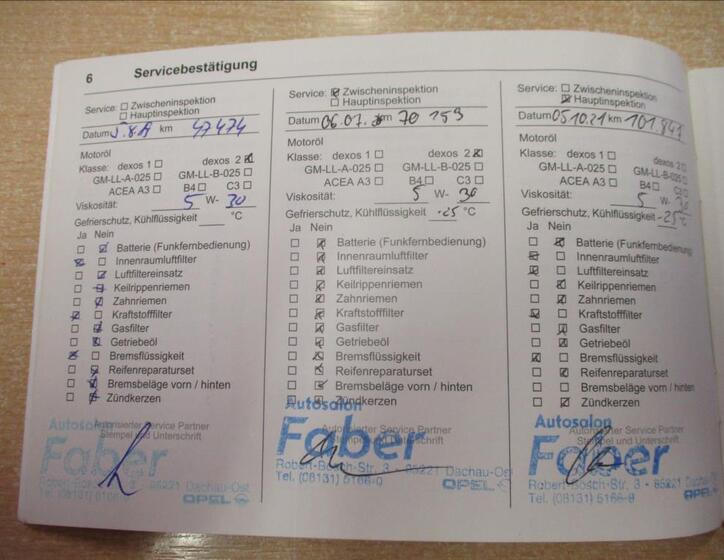 6 Servicebestätigung
Service: ☐ Zwischeninspektion
☐ Hauptinspektion
Datum km 47474
Motoröl
Klasse: dexos 1 ☐ dexos 2 ☒
GM-LL-A-025 ☐ GM-LL-B-025 ☐
ACEA A3 ☐ B4 ☐ C3 ☐
Viskosität: 5 W- 30
Gefrierschutz, Kühlflüssigkeit °C
Ja Nein
☐ ☒ Batterie (Funkfernbedienung)
☒ ☐ Innenraumluftfilter
☐ ☒ Luftfiltereinsatz
☐ ☒ Keilrippenriemen
☐ ☒ Zahnriemen
☒ ☐ Kraftstofffilter
☐ ☒ Gasfilter
☐ ☒ Getriebeöl
☒ ☐ Bremsflüssigkeit
☐ ☒ Reifenreparaturset
☐ ☒ Bremsbeläge vorn / hinten
☐ ☒ Zündkerzen
Autorisierter Service Partner
Stempel und Unterschrift
Autosalon
Faber
Robert-Bosch-Str. 3 • 85221 Dachau-Ost
Tel. (08131) 5166-0 OPEL
Service: ☒ Zwischeninspektion
☐ Hauptinspektion
Datum 06.07. km 70 153
Motoröl
Klasse: dexos 1 ☐ dexos 2 ☒
GM-LL-A-025 ☐ GM-LL-B-025 ☐
ACEA A3 ☐ B4 ☐ C3 ☐
Viskosität: 5 W- 30
Gefrierschutz, Kühlflüssigkeit -25 °C
Ja Nein
☐ ☒ Batterie (Funkfernbedienung)
☐ ☒ Innenraumluftfilter
☐ ☒ Luftfiltereinsatz
☐ ☒ Keilrippenriemen
☐ ☒ Zahnriemen
☐ ☒ Kraftstofffilter
☐ ☒ Gasfilter
☐ ☒ Getriebeöl
☐ ☒ Bremsflüssigkeit
☐ ☒ Reifenreparaturset
☐ ☒ Bremsbeläge vorn / hinten
☐ ☒ Zündkerzen
Autorisierter Service Partner
Stempel und Unterschrift
Autosalon
Faber
Robert-Bosch-Str. 3 • 85221 Dachau-Ost
Tel. (08131) 5166-0 OPEL
Service: ☐ Zwischeninspektion
☒ Hauptinspektion
Datum 05.10.21 km 101.841
Motoröl
Klasse: dexos 1 ☐ dexos 2 ☐
GM-LL-A-025 ☐ GM-LL-B-025 ☐
ACEA A3 ☐ B4 ☐ C3 ☐
Viskosität: 5 W- 30
Gefrierschutz, Kühlflüssigkeit -25 °C
Ja Nein
☐ ☒ Batterie (Funkfernbedienung)
☒ ☐ Innenraumluftfilter
☒ ☐ Luftfiltereinsatz
☐ ☒ Keilrippenriemen
☐ ☒ Zahnriemen
☒ ☐ Kraftstofffilter
☐ ☒ Gasfilter
☐ ☒ Getriebeöl
☒ ☐ Bremsflüssigkeit
☐ ☒ Reifenreparaturset
☐ ☐ Bremsbeläge vorn / hinten
☐ ☒ Zündkerzen
Autorisierter Service Partner
Stempel und Unterschrift
Autosalon
Faber
Robert-Bosch-Str. 3 • 85221 Dachau
Tel. (08131) 5166-0 OPEL